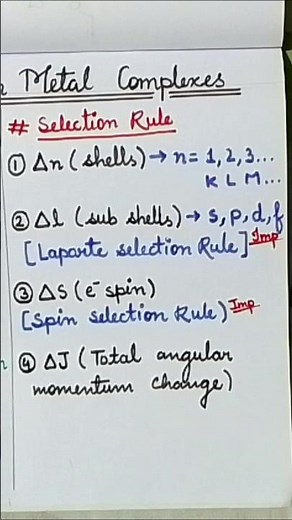 Metal Complexes
# Selection Rule
① Δn (shells) → n = 1, 2, 3...
K L M...
② Δl (sub shells) → s, p, d, f
[Laporte selection Rule] Imp
③ ΔS (e⁻ spin)
[Spin selection Rule) Imp
④ ΔJ (Total angular
momentum change)